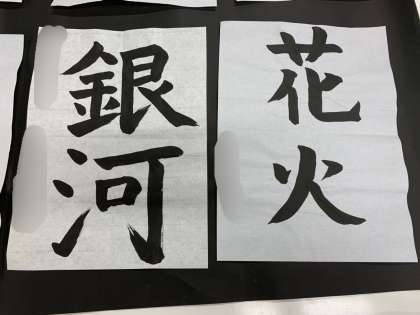 銀河
花火